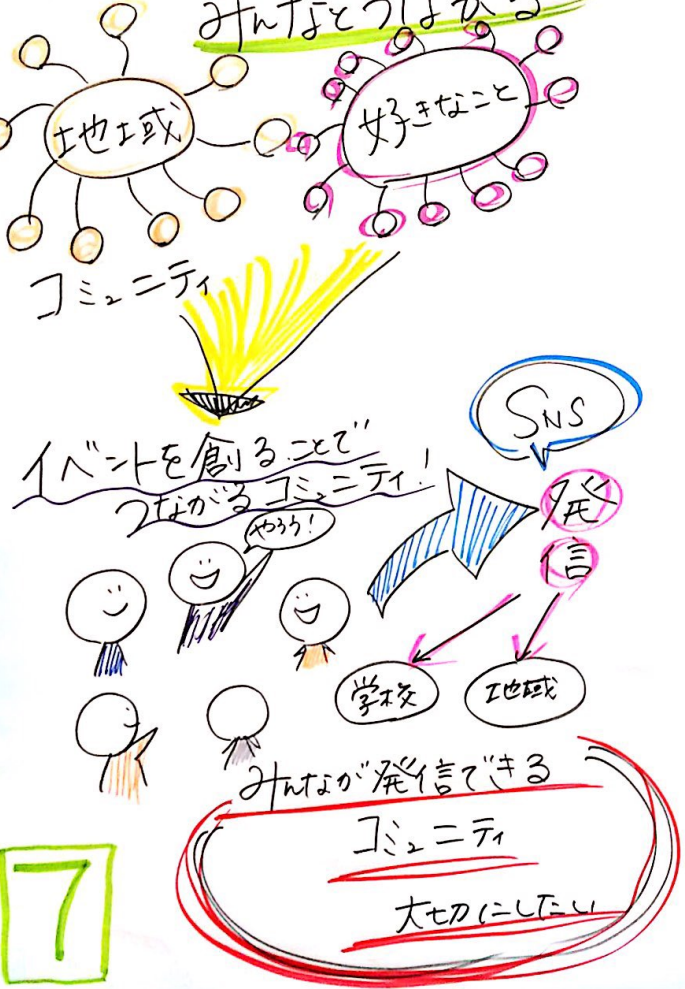 みんなとつながる
地域
好きなこと
コミュニティ
SNS
イベントを創ることで
つながるコミュニティ!
やろう!
発
信
学校
地域
みんなが発信できる
コミュニティ
大切にしたい
7